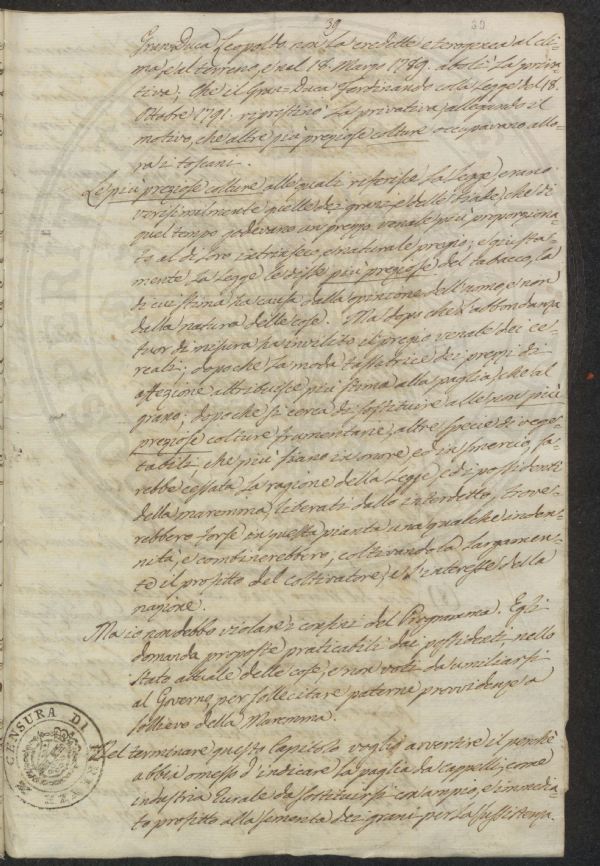 39
39
Gran-Duca Leopoldo non la credette estemporea al cli=
ma, e al terreno, e nel 18. Marzo 1789. abolì la priva=
tiva; che il Gran-Duca Ferdinando colla Legge del 18.
Ottobre 1791. ripristinò la privativa, allegando il
motivo, che altre più preziose colture occupavano allo=
ra i toscani.
Le più preziose colture, alle quali riferisce la Legge, erano
verisimilmente quelle dei grani, e delle biade, che di
quel tempo godevano un prezzo venale più proporziona=
to al di loro intrinseco, e naturale pregio; e giusta=
mente la Legge le disse più preziose del tabacco, la
di cui stima ha causa dalla opinione dell'uomo, e non
dalla natura delle cose. Ma dopo che l'abbondanza
fuor di misura ha invilito il pregio venale dei ce=
reali; dopo che la moda tassatrice dei prezzi di
affezione attribuisce più stima alla paglia, che al
grano; dopo che si cerca di sostituire alle non più
preziose colture frumentarie, altre specie di vege=
tabili che più siano in onore ed in smercio, sa=
rebbe cessata la ragione della Legge, ed i possidenti
della maremma, liberati dallo interdetto, trove=
rebbero forse in questa pianta una qualche inden=
nità, e combinerebbero, coltivandola largamen=
te il profitto del coltivatore, e l'interesse della
nazione.
Ma io non debbo violare i confini del Programma. Egli
domanda proposte praticabili dai possidenti nello
stato attuale delle cose, e non voti da umiliarsi
al Governo per sollecitare paterne provvidenze a
sollievo della Maremma.
Nel terminare questo Capitolo voglio avvertire il perchè
abbia omesso d'indicare la paglia da cappelli, come
industria rurale da sostituirsi con ampio, e immedia=
to profitto alla sementa dei grani per la sussistenza.
CENSURA DI FIRENZE